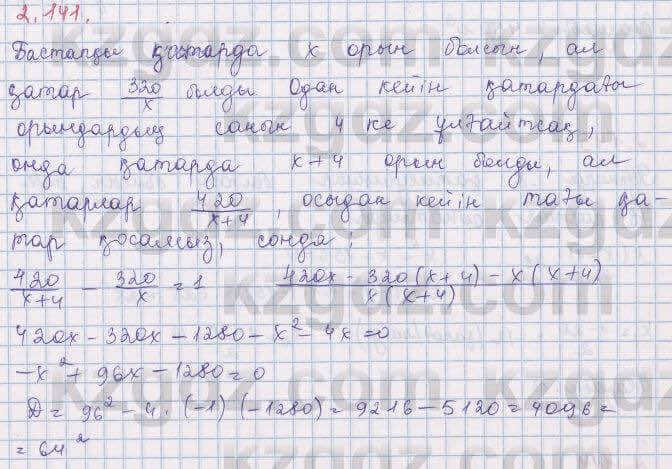 2.141.
Бастапқы қатарда x орын болсын, ал
қатар 320/x болды Одан кейін қатардағы
орындардың санын 4 ке ұлғайтсақ,
онда қатарда x+4 орын болды, ал
қатарлар 420/x+4, осыдан кейін тағы қа-
тар қосамыз, сонда;
420/x+4 - 320/x = 1 420x - 320(x+4) - x(x+4)/x(x+4)
420x - 320x - 1280 - x² - 4x = 0
-x² + 96x - 1280 = 0
D = 96² - 4 · (-1) (-1280) = 9216 - 5120 = 4096 =
= 64²